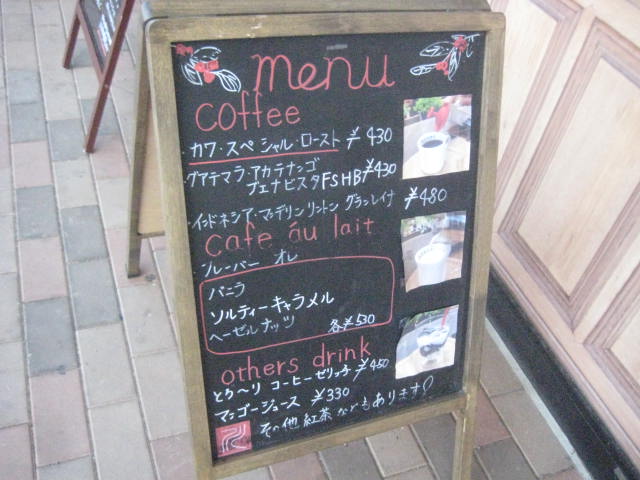 menu
coffee
・カワ・スペシャル・ロースト ¥430
・グアテマラ・アカテナンゴ
ブエナビスタFSHB ¥430
・インドネシア・マンデリンリントン グランレイナ ¥480
cafe au lait
・フレーバー オレ
バニラ
ソルティーキャラメル
ヘーゼルナッツ 各¥530
others drink
とろ〜り コーヒーゼリッチ ¥450
マンゴージュース ¥330
その他 紅茶 などもあります!